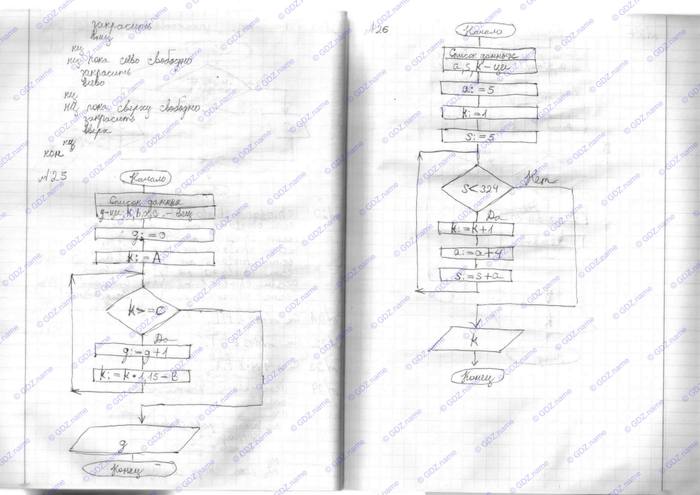 закрасить
вниз
кц
нц пока слево свободно
закрасить
влево
кц
нц пока сверху свободно
закрасить
вверх
кц
кон
№25
Начало
Список данных
g:=0
k:=A
k>=C
Да
g:=g+1
k:=k*1,15-B
g
Конец
№26
Начало
Список данных
a,s,k-цел
a:=5
k:=1
s:=5
s<324
Нет
Да
k:=k+1
a:=a+4
s:=s+a
k
Конец
© GDZ.name